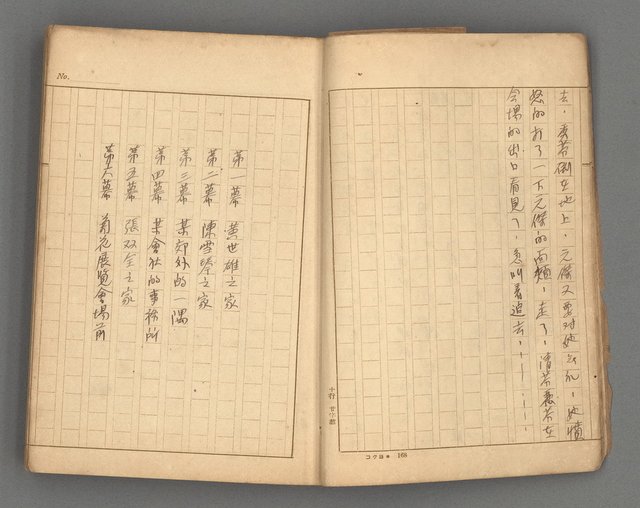 去，秀蓉倒在地上，元傑又要对她無礼，她憤
怒的打了一下元傑的面頰，走了，清茶養茶在
会場的出口看見了，急叫着追去，
コクヨ 168
No.
第一幕 黃世雄之家
第二幕 陳雪琴之家
第三幕 某郊外的一隅
第四幕 某會社的事務所
第五幕 張双全之家
第六幕 菊花展覧會場前
十行 廿字詰